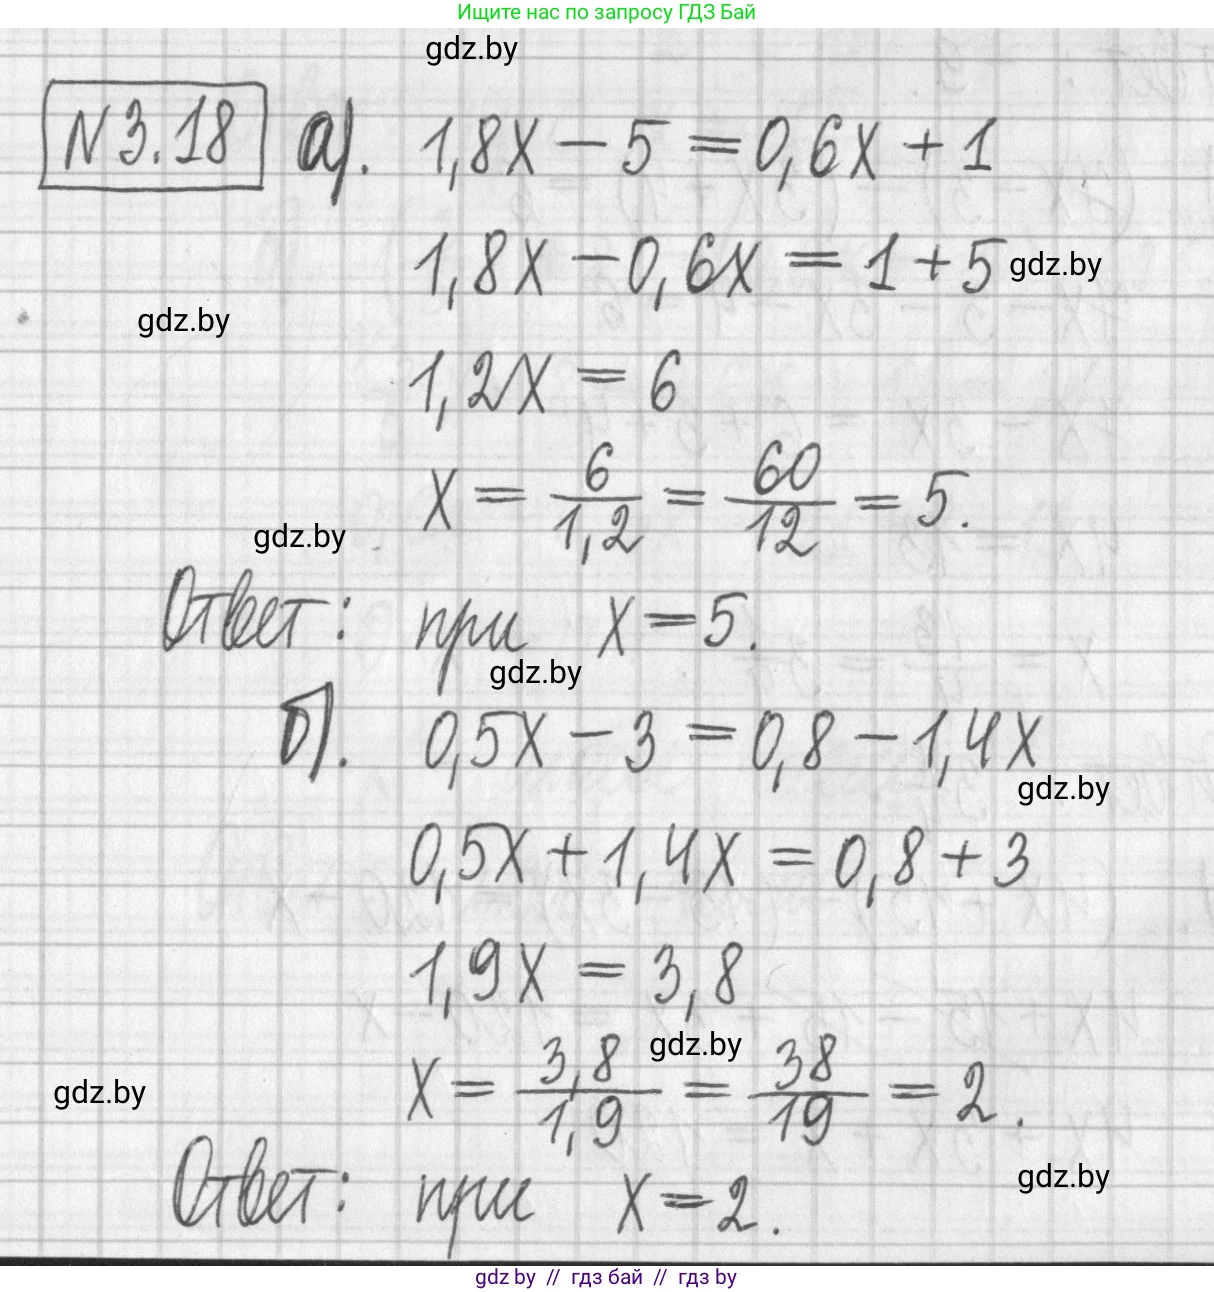 Ищите нас по запросу ГДЗ Бай
gdz.by
N3.18 а). 1,8x − 5 = 0,6x + 1
1,8x − 0,6x = 1 + 5 gdz.by
gdz.by
1,2x = 6
x = 6/1,2 = 60/12 = 5.
gdz.by
Ответ: при x = 5.
gdz.by
б). 0,5x − 3 = 0,8 − 1,4x
gdz.by
0,5x + 1,4x = 0,8 + 3
1,9x = 3,8
gdz.by
x = 3,8/1,9 = 38/19 = 2.
gdz.by
Ответ: при x = 2.
gdz.by
gdz by // гдз бай // гдз by